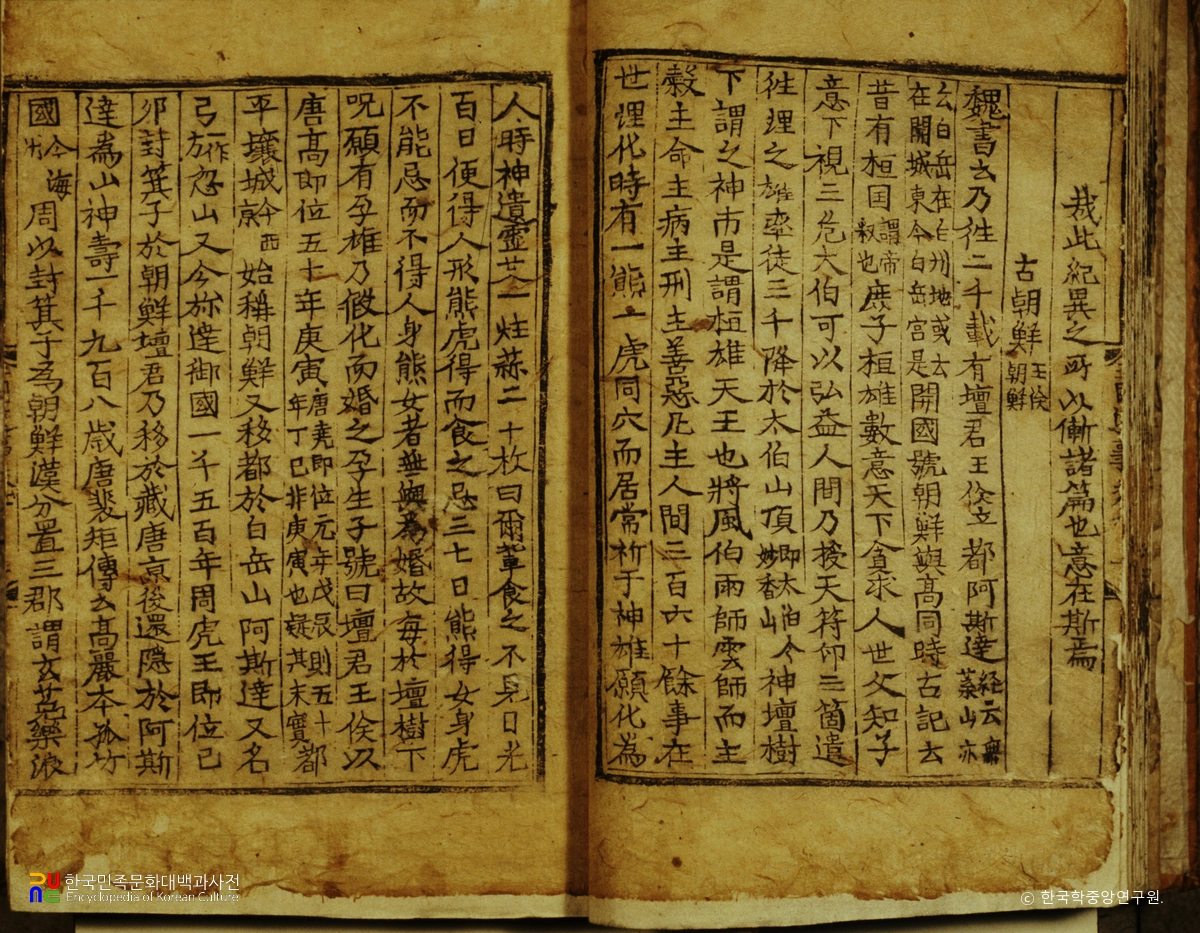 哉此紀異之所以慚諸篇也意在斯焉
古朝鮮 王倹朝鮮
魏書云乃往二千載有壇君王倹立都阿斯達 経云無葉山亦
云白岳在白州地或云在開城東今白岳宮是 開國號朝鮮與高同時古記云
昔有桓囯 謂帝釈也 庶子桓雄數意天下貪求人世父知子
意下視三危大伯可以弘益人間乃授天符印三箇遣
往理之雄率徒三千降於太伯山頂 即太伯今妙香山 神壇樹
下謂之神市是謂桓雄天王也將風伯雨師雲師而主
糓主命主病主刑主善惡凡主人間三百六十餘事在
世理化時有一熊一虎同穴而居常祈于神雄願化為
人時神遺靈艾一炷蒜二十枚曰爾軰食之不見日光
百日便得人形熊虎得而食之忌三七日熊得女身虎
不能忌而不得人身熊女者無與為婚故每於壇樹下
呪願有孕雄乃假化而婚之孕生子號曰壇君王倹以
唐高即位五十年庚寅 唐堯即位元年戊辰則五十年丁巳非庚寅也疑其未實 都
平壤城 今西京 始稱朝鮮又移都於白岳山阿斯達又名
弓 一作方 忽山又今旀達御國一千五百年周虎王即位己
夘封箕子於朝鮮壇君乃移於藏唐京後還隱於阿斯
達為山神壽一千九百八歲唐裴矩傳云高麗本孤竹
國 今海州 周以封箕子為朝鮮漢分置三郡謂玄菟樂浪
한국민족문화대백과사전
Encyclopedia of Korean Culture
© 한국학중앙연구원.